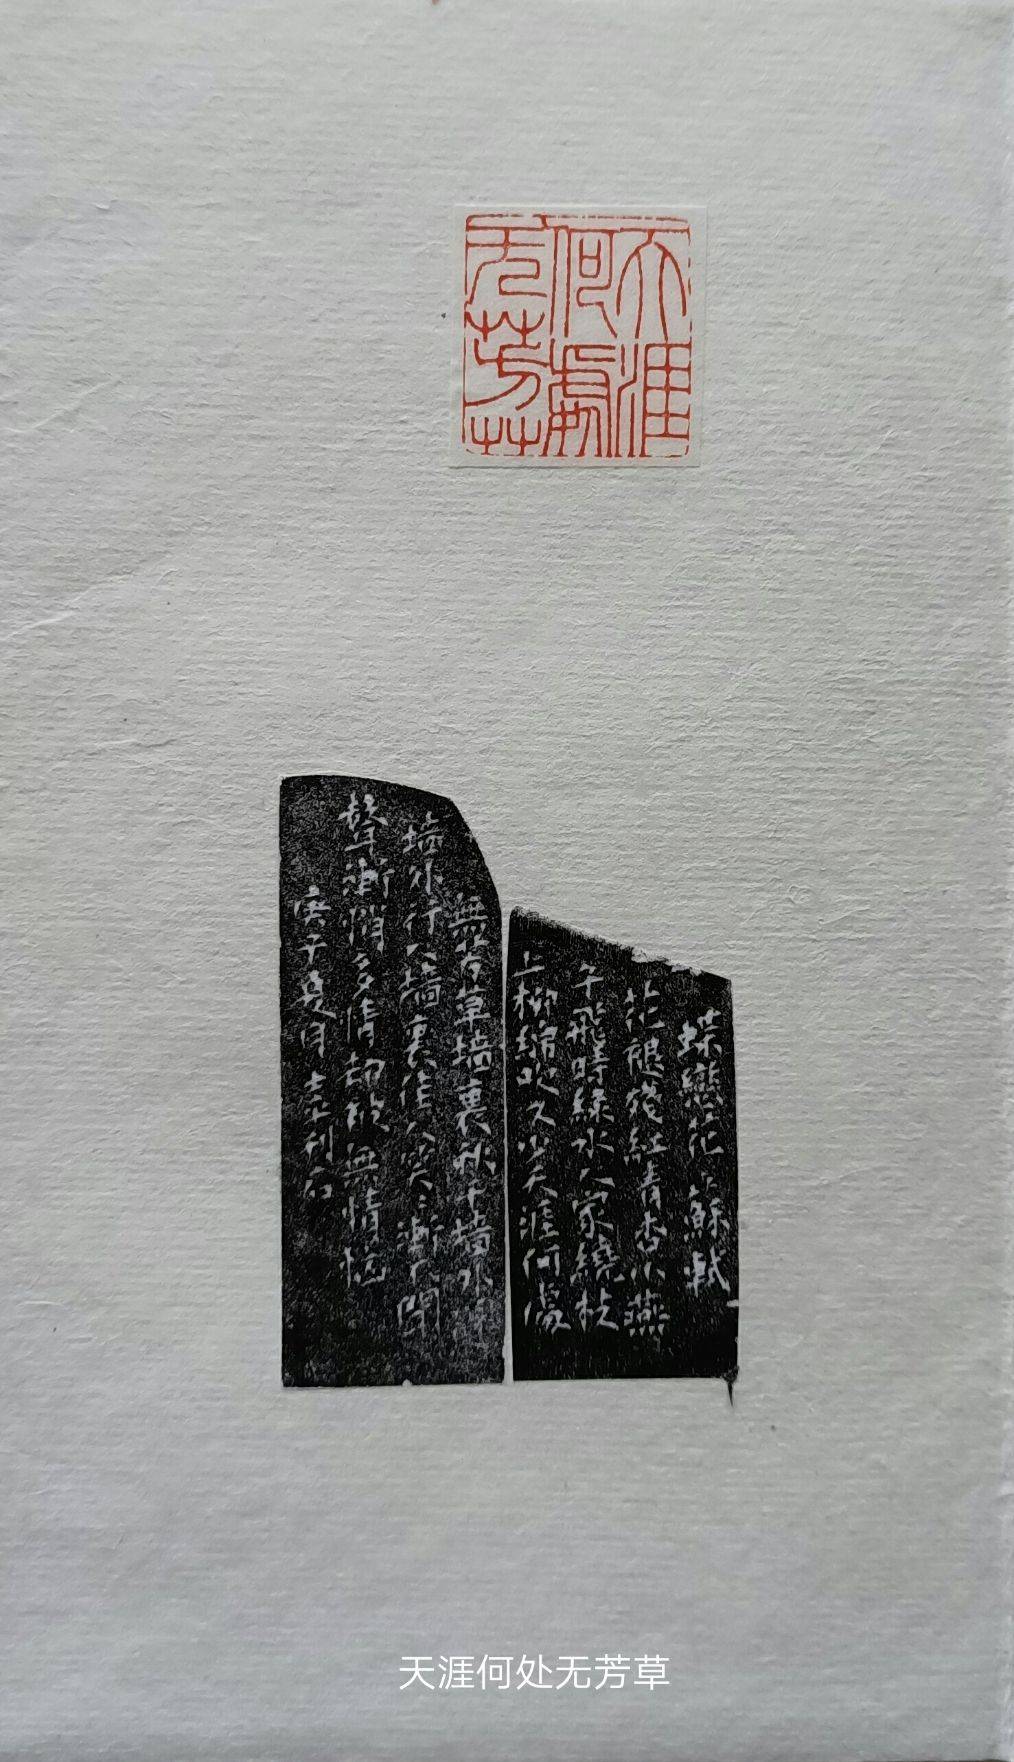 天涯
何處
无芳艸
蝶戀花 蘇軾
花褪殘紅青杏小燕
子飛時綠水人家繞枝
上柳綿吹又少天涯何處
無芳草墙裏秋千墙外道
墙外行人墙裏佳人笑〻漸不聞
聲漸悄多情却被無情惱
庚子夏月
天涯何处无芳草